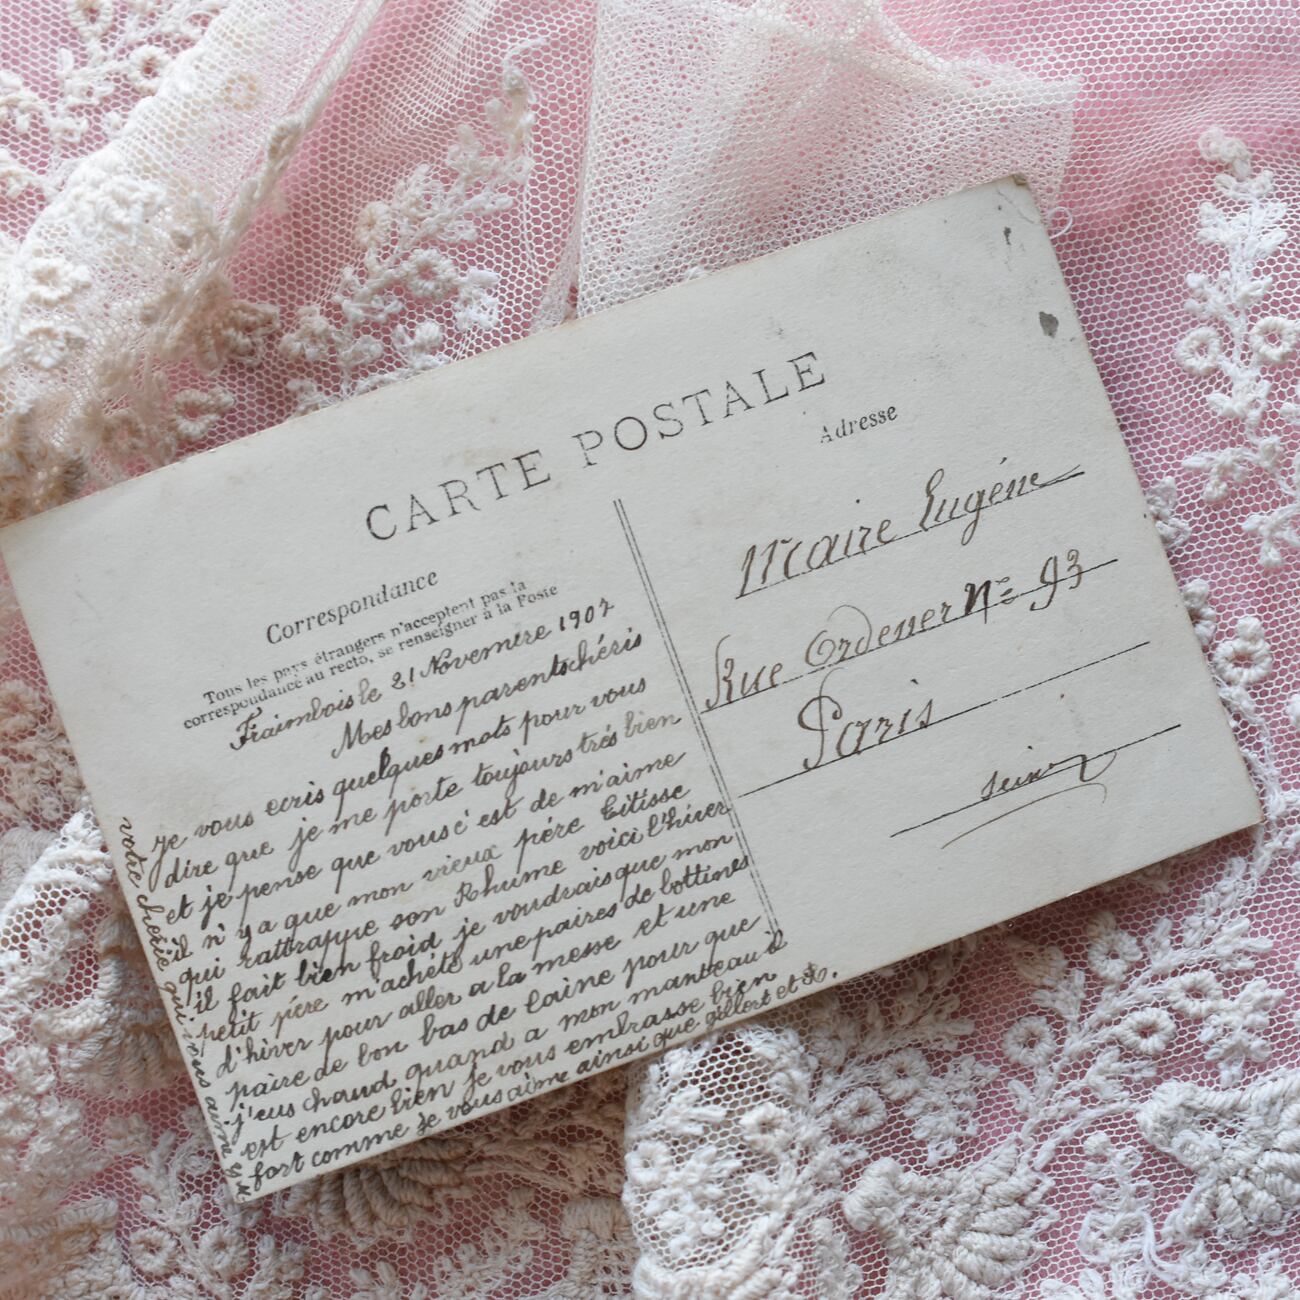 CARTE POSTALE
Correspondance
Tous les pays étrangers n'acceptent pas la
correspondance au recto, se renseigner à la Poste
Adresse
Fraimbois le 21 Novembre 1907
Mes bons parents chéris
je vous ecris quelques mots pour vous
dire que je me porte toujours trés bien
et je pense que vous c'est de m'aime
il n'y a que mon vieux pére
qui rattrappe son Rhume voici l'hiver
il fait bien froid je voudrais que mon
petit pére m'achéte une paires de bottines
d'hiver pour aller a la messe et une
paire de bon bas de laine pour que
j'eus chaud quand a mon manteau il
est encore bien je vous embrasse bien
fort comme je vous aime ainsi que
votre cherie qui vous aime
Maire Eugéne
Rue Ordener Nº 93
Paris
Seine